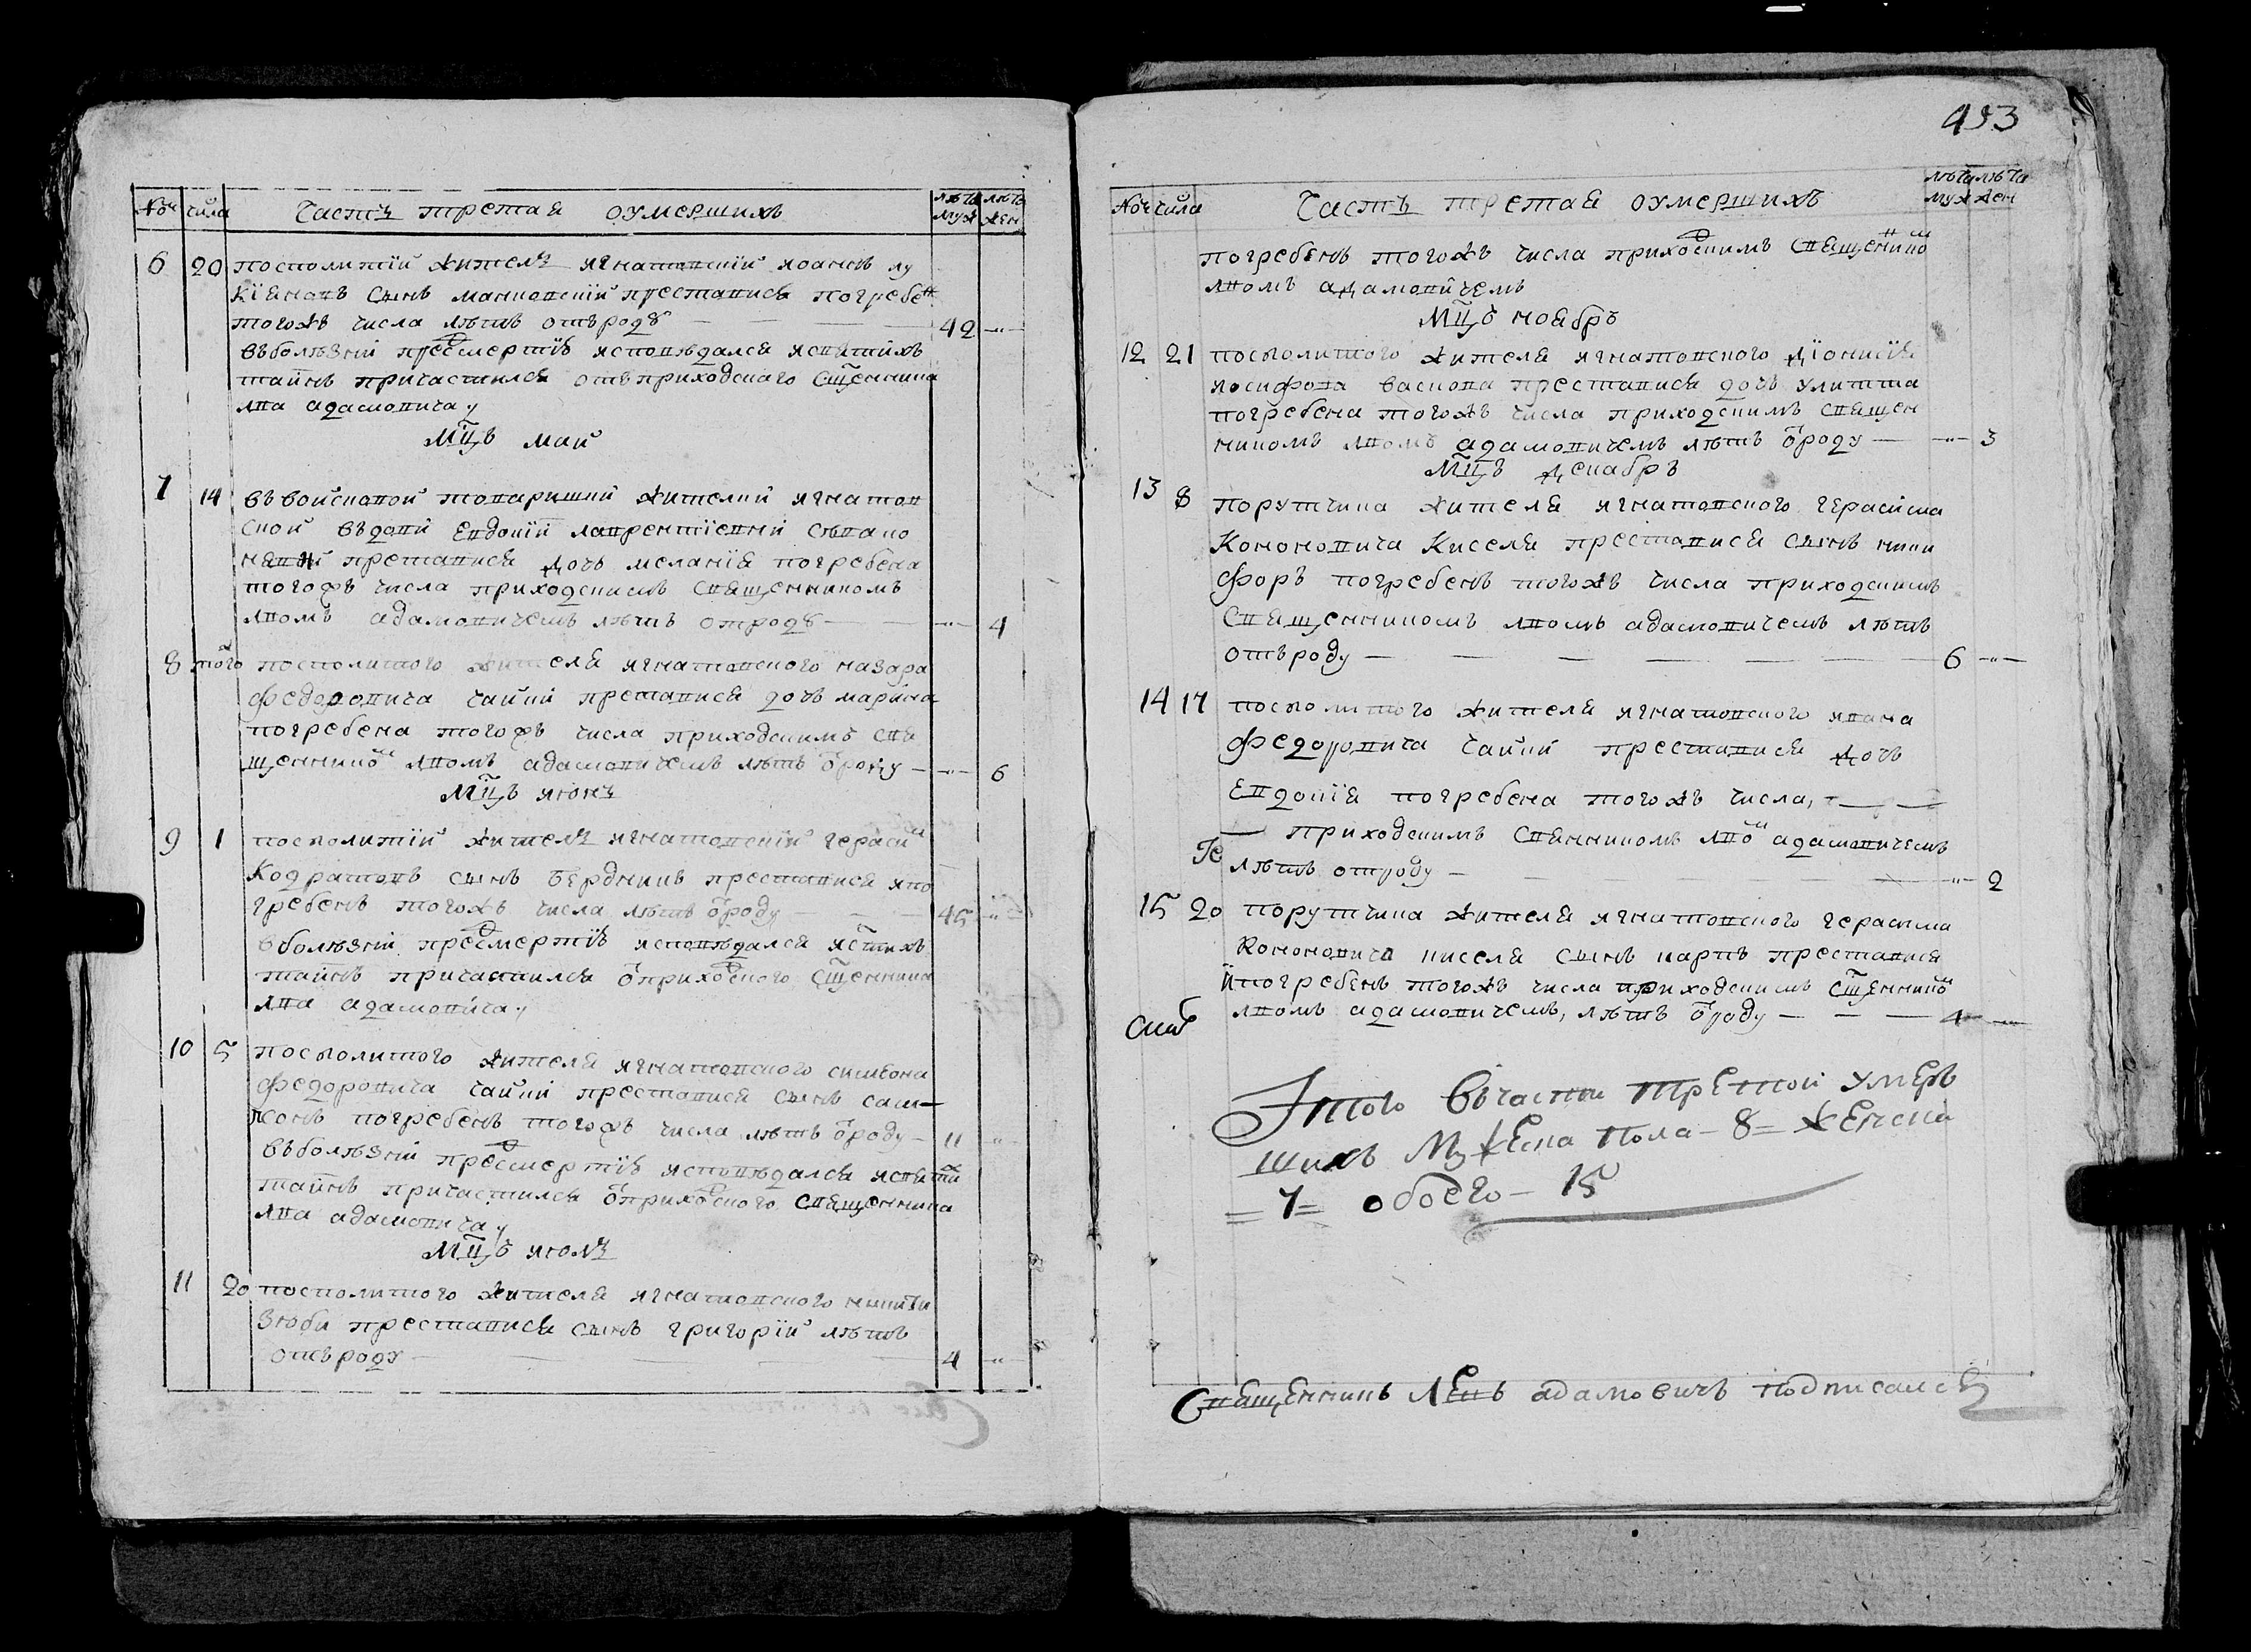 № числа Часть третая оумершихъ лѣта муж лѣта жен
6 20 посполитій житель игнатовскій иоаннъ лу
кіяновъ сынъ манковскій преставися погребен
тогожъ числа лѣтъ отъ роду — 42 —
въ болѣзни предсмертнѣ исповѣдался и святихъ
таинъ причастился отъ приходскаго сщенника
лва адамовича
Мцъ май
7 14 въ войсковой товаришки жителки игнатов
ской вѣдови Евдокіи лаврентіевни
преставися дочь меланія погребена
тогожъ числа приходскимъ священникомъ
лвомъ адамовичемъ лѣтъ от роду — — 4
8 того посполитого жителя игнатовского назара
федоровича чайки преставися дочь марина
погребена тогожъ числа приходскимъ свя
щенником лвомъ адамовичемъ лѣтъ о роду — — 6
Мцъ июнь
9 1 посполитій житель игнатовскій герасим
Кодратовъ сынъ бердникъ преставися ипо
гребенъ тогожъ числа лѣтъ о роду — 45 —
в болѣзни предсмертнѣ исповѣдался и стихъ
таинъ причастился о приходского сщенника
лва адамовича
10 5 посполитого жителя игнатовского симеона
федоровича чайки преставися сынъ сам
сонъ погребенъ тогожъ числа лѣтъ о роду — 11 —
въ болѣзни предсмертнѣ исповѣдался и святи
таинъ причастился о приходского священника
лва адамовича
Мцъ июль
11 20 посполитого жителя игнатовского никити
Зюби преставися сынъ григорій лѣтъ
отъ роду — 4 —
493
№ числа Часть третая оумершихъ лѣта муж лѣта жен
погребенъ тогожъ числа приходскимъ священнико
лвомъ адамовичемъ
Мцъ ноябрь
12 21 посполитого жителя игнатовского діонисія
иосифова васкова преставися дочь улитта
погребена тогожъ числа приходскимъ священ
никомъ лвомъ адамовичемъ лѣтъ о роду — — 3
Мцъ декабрь
13 8 порутчика жителя игнатовского герасима
Кононовича Киселя преставися сынъ ники
форъ погребенъ тогожъ числа приходскимъ
священникомъ лвомъ адамовичемъ лѣтъ
отъ роду — 6 —
14 17 посполитого жителя игнатовского ивана
федоровича чайки преставися дочь
Евдокія погребена тогожъ числа,
приходскимъ свяенникомъ лво адамовичемъ
лѣтъ от роду — — 2
15 20 порутчика жителя игнатовского герасима
кононовича киселя сынъ карпъ преставися
ипогребенъ тогожъ числа приходскимъ сщенником
лвомъ адамовичемъ, лѣтъ о роду — 4 —
Итого въ части третой умер
шихъ Мужеска пола — 8 = женска
= 7 = обоего — 15
Священникъ Левъ адамовичъ подписался